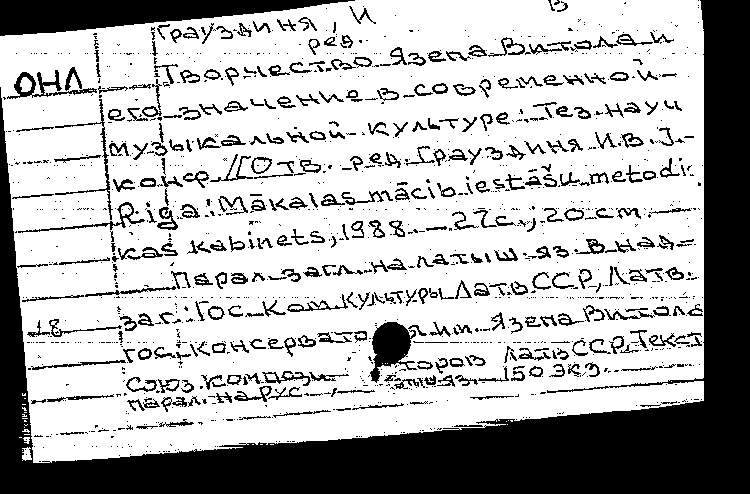 Грауздиня, И В
ред.
ОНЛ
Творчество Язепа Витола и
его значение в современной
музыкальной культуре: Тез. науч
конф. / [Отв. ред. Грауздиня И.В.]. -
Riga: Mākslas mācib iestāšu metodi-
kas kabinets, 1988. - 27с.; 20 cm. -
Парал. загл. на латыш. яз. В над-
заг.: Гос. ком. культуры ЛатвССР, Латв.
18
гос. консервато я им. Язепа Витола
Союз компози торов ЛатвССР. Текст
парал. на рус. , латыш. яз. 150 экз.